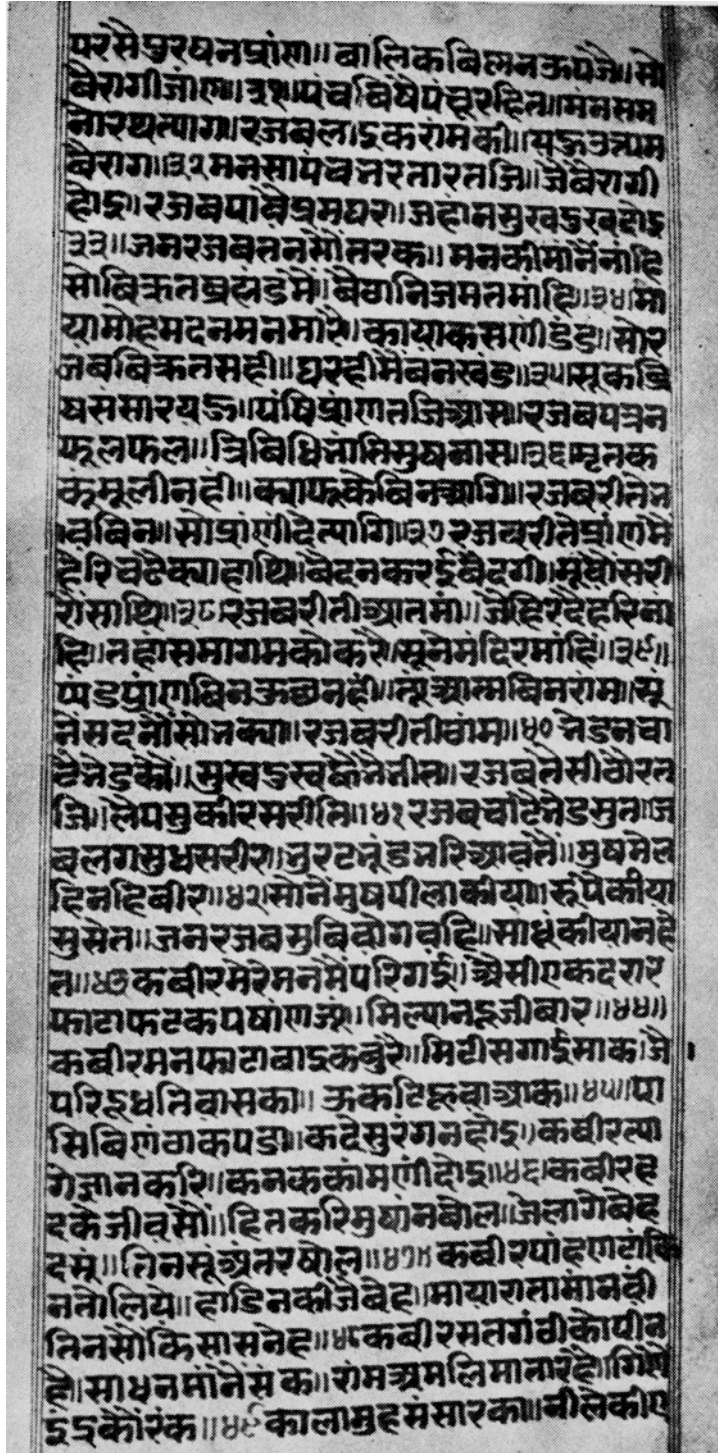 परसैपुरषनप्रांण॥बालिकबिलनऊपजै॥सो
बैरागीजांण॥३१॥पंचबिषैपंचूरहित॥मनसम
नोरथत्याग॥रजबला।इकरांमकी॥यऊउत्यम
बैराग॥३२मनसापंचनरतारतजि॥जेबैरागी
होइ॥रजबपावैप्रमघर॥जहांनसुखडुखदोइ
३३॥जनरजबतनसौंतरक॥मनकीमांनैनांहि
सोबिक्रतब्रह्मंडमें॥बैठानिजमतमांहि॥३४॥मा
यामोहमदनमनमारै॥कायाकसणीडंड॥सोर
जबबिक्रतसही॥घरहीमैंबनखंड॥३५॥सूकबि
षससारयऊ॥पंषिप्रांणतजिआस॥रजबपत्रन
फूलफल॥त्रिबिधिनांतिसुषनास॥३६॥मृतक
कंमूलीनही॥क्याफूकैबिनआगि॥रजबरीतेत
वबिन॥सोप्रांणीदेत्यागि॥३७रजबरीतेप्रांणमे
हेरिचढैक्याहाथि॥बैदनकरईबैदगी॥मूवांसरी
रांसाथि॥३८॥रजबरीतीआतमां॥जेहिरदैहरिनां
हि॥तहांसमागमकोकरै॥सूनेमंदिरमांहिं॥३९॥
प्यंडप्रांणबिनऊछनही॥त्यूंआत्मबिनरांम॥सूं
नेसदनौंसोनक्या॥रजबरीतीठांम॥४०नेडनचा
टेनेडकौं॥सुखडुखकैनैनीत॥रजबतेसीठौरत
जि॥लेपसुकीरसरीति॥४१रजबचांटेनेडसुत॥ज
बलगसुधसरीर॥नुरटनूंडनरिआवतैं॥मुषमेल
हिनहिबीर॥४२॥सोनैंमुषपीलाकीया॥रूंपैकीया
सुसेत॥जनरजबसुबिवोगवहि॥साधूकीयानहे
त॥४३कबीरमेरेमनमैंपरिगई॥ऐसीएकदरार
फाटाफटकपषांणज्यूं॥मिल्यानदूजीबार॥४४॥
कबीरमनफाटाबाइकबुरै॥मिटीसगाईसाक॥जै
परिदूधतिवासका॥ऊकटिहूवाआक॥४५॥पा
सिबिणंठाकपडा॥कदेसुरंगनहोइ॥कबीरत्या
गेज्ञानकरि॥कनककांमणीदोइ॥४६॥कबीरह
दकेजीवसौं॥हितकरिमुषांनबोल॥जेलागेबेह
दसूं॥तिनसूअंतरषोल॥४७॥कबीरपांहणटांकि
नतोलिये॥हाडिनकीजैबेह॥मायारातामांनवी
तिनसौंकिसासनेह॥४८कबीरमतगंठीकोपीन
है॥साधनमांनैसंक॥रांमअमलिमातारहै॥गिणै
इंद्रकौंरंक॥४९कालामुहसंसारका॥नीलेकीए